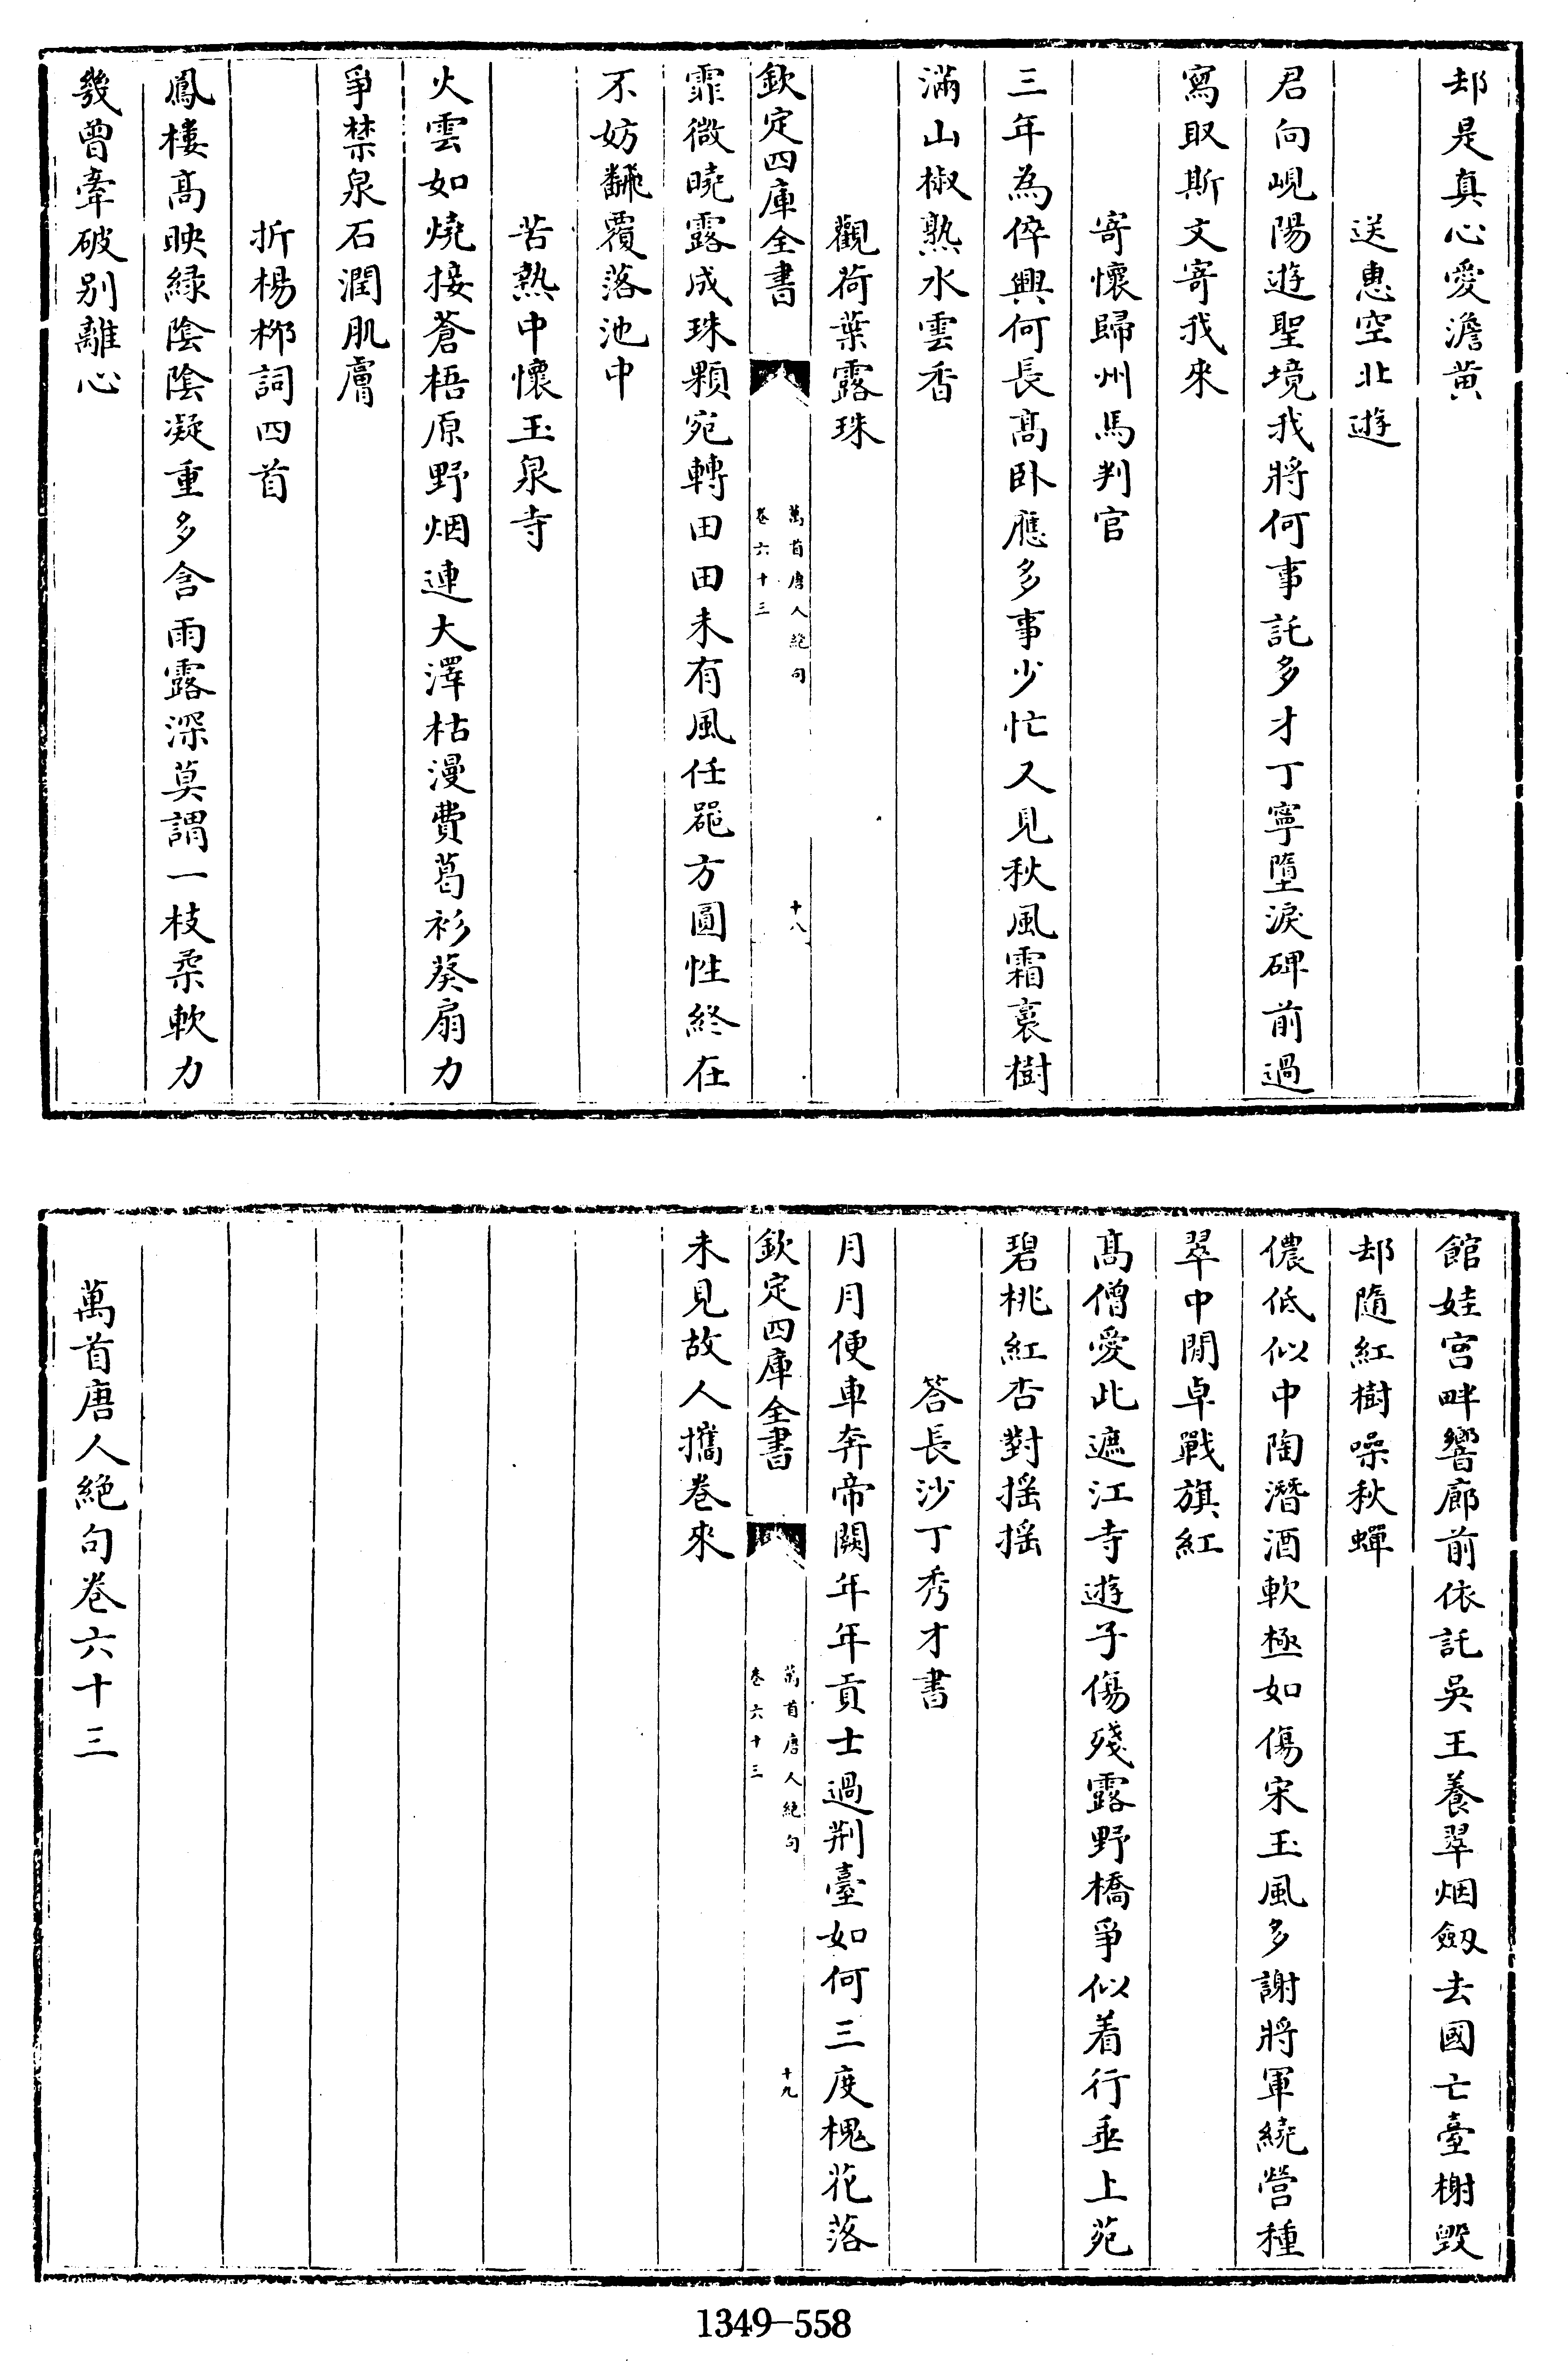 却是真心愛澹黃
送惠空北遊
君向峴陽遊聖境我將何事託多才丁寧墮淚碑前過
寫取斯文寄我來
寄懷歸州馬判官
三年為倅興何長髙卧應多事少忙又見秋風霜裛樹
滿山椒熟水雲香
觀荷葉露珠
欽定四庫全書
萬首唐人絶句
卷六十三
十八
霏微曉露成珠顆宛轉田田未有風任器方圓性終在
不妨飜覆落池中
苦熱中懷玉泉寺
火雲如燒接蒼梧原野烟連大澤枯漫費葛衫葵扇力
爭禁泉石潤肌膚
折楊栁詞四首
鳳樓髙映緑陰陰凝重多含雨露深莫謂一枝柔軟力
幾曾牽破别離心
館娃宮畔響廊前依託吳王養翠烟劔去國亡臺榭毀
却隨紅樹噪秋蟬
儂低似中陶潛酒軟極如傷宋玉風多謝將軍繞營種
翠中閒卓戰旗紅
髙僧愛此遮江寺遊子傷殘露野橋爭似着行垂上苑
碧桃紅杏對揺揺
答長沙丁秀才書
月月便車奔帝闕年年貢士過荆臺如何三度槐花落
欽定四庫全書
萬首唐人絶句
卷六十三
十九
未見故人攜卷來
萬首唐人絶句卷六十三
1349-558